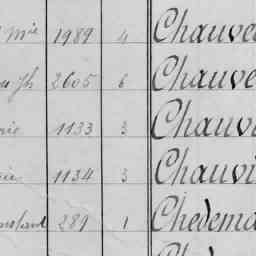 mie 1989 4 Chauve
Jh 2605 6 Chauve
rie 1133 3 Chauv
1134 3 Chauvi
289 1 Chedema